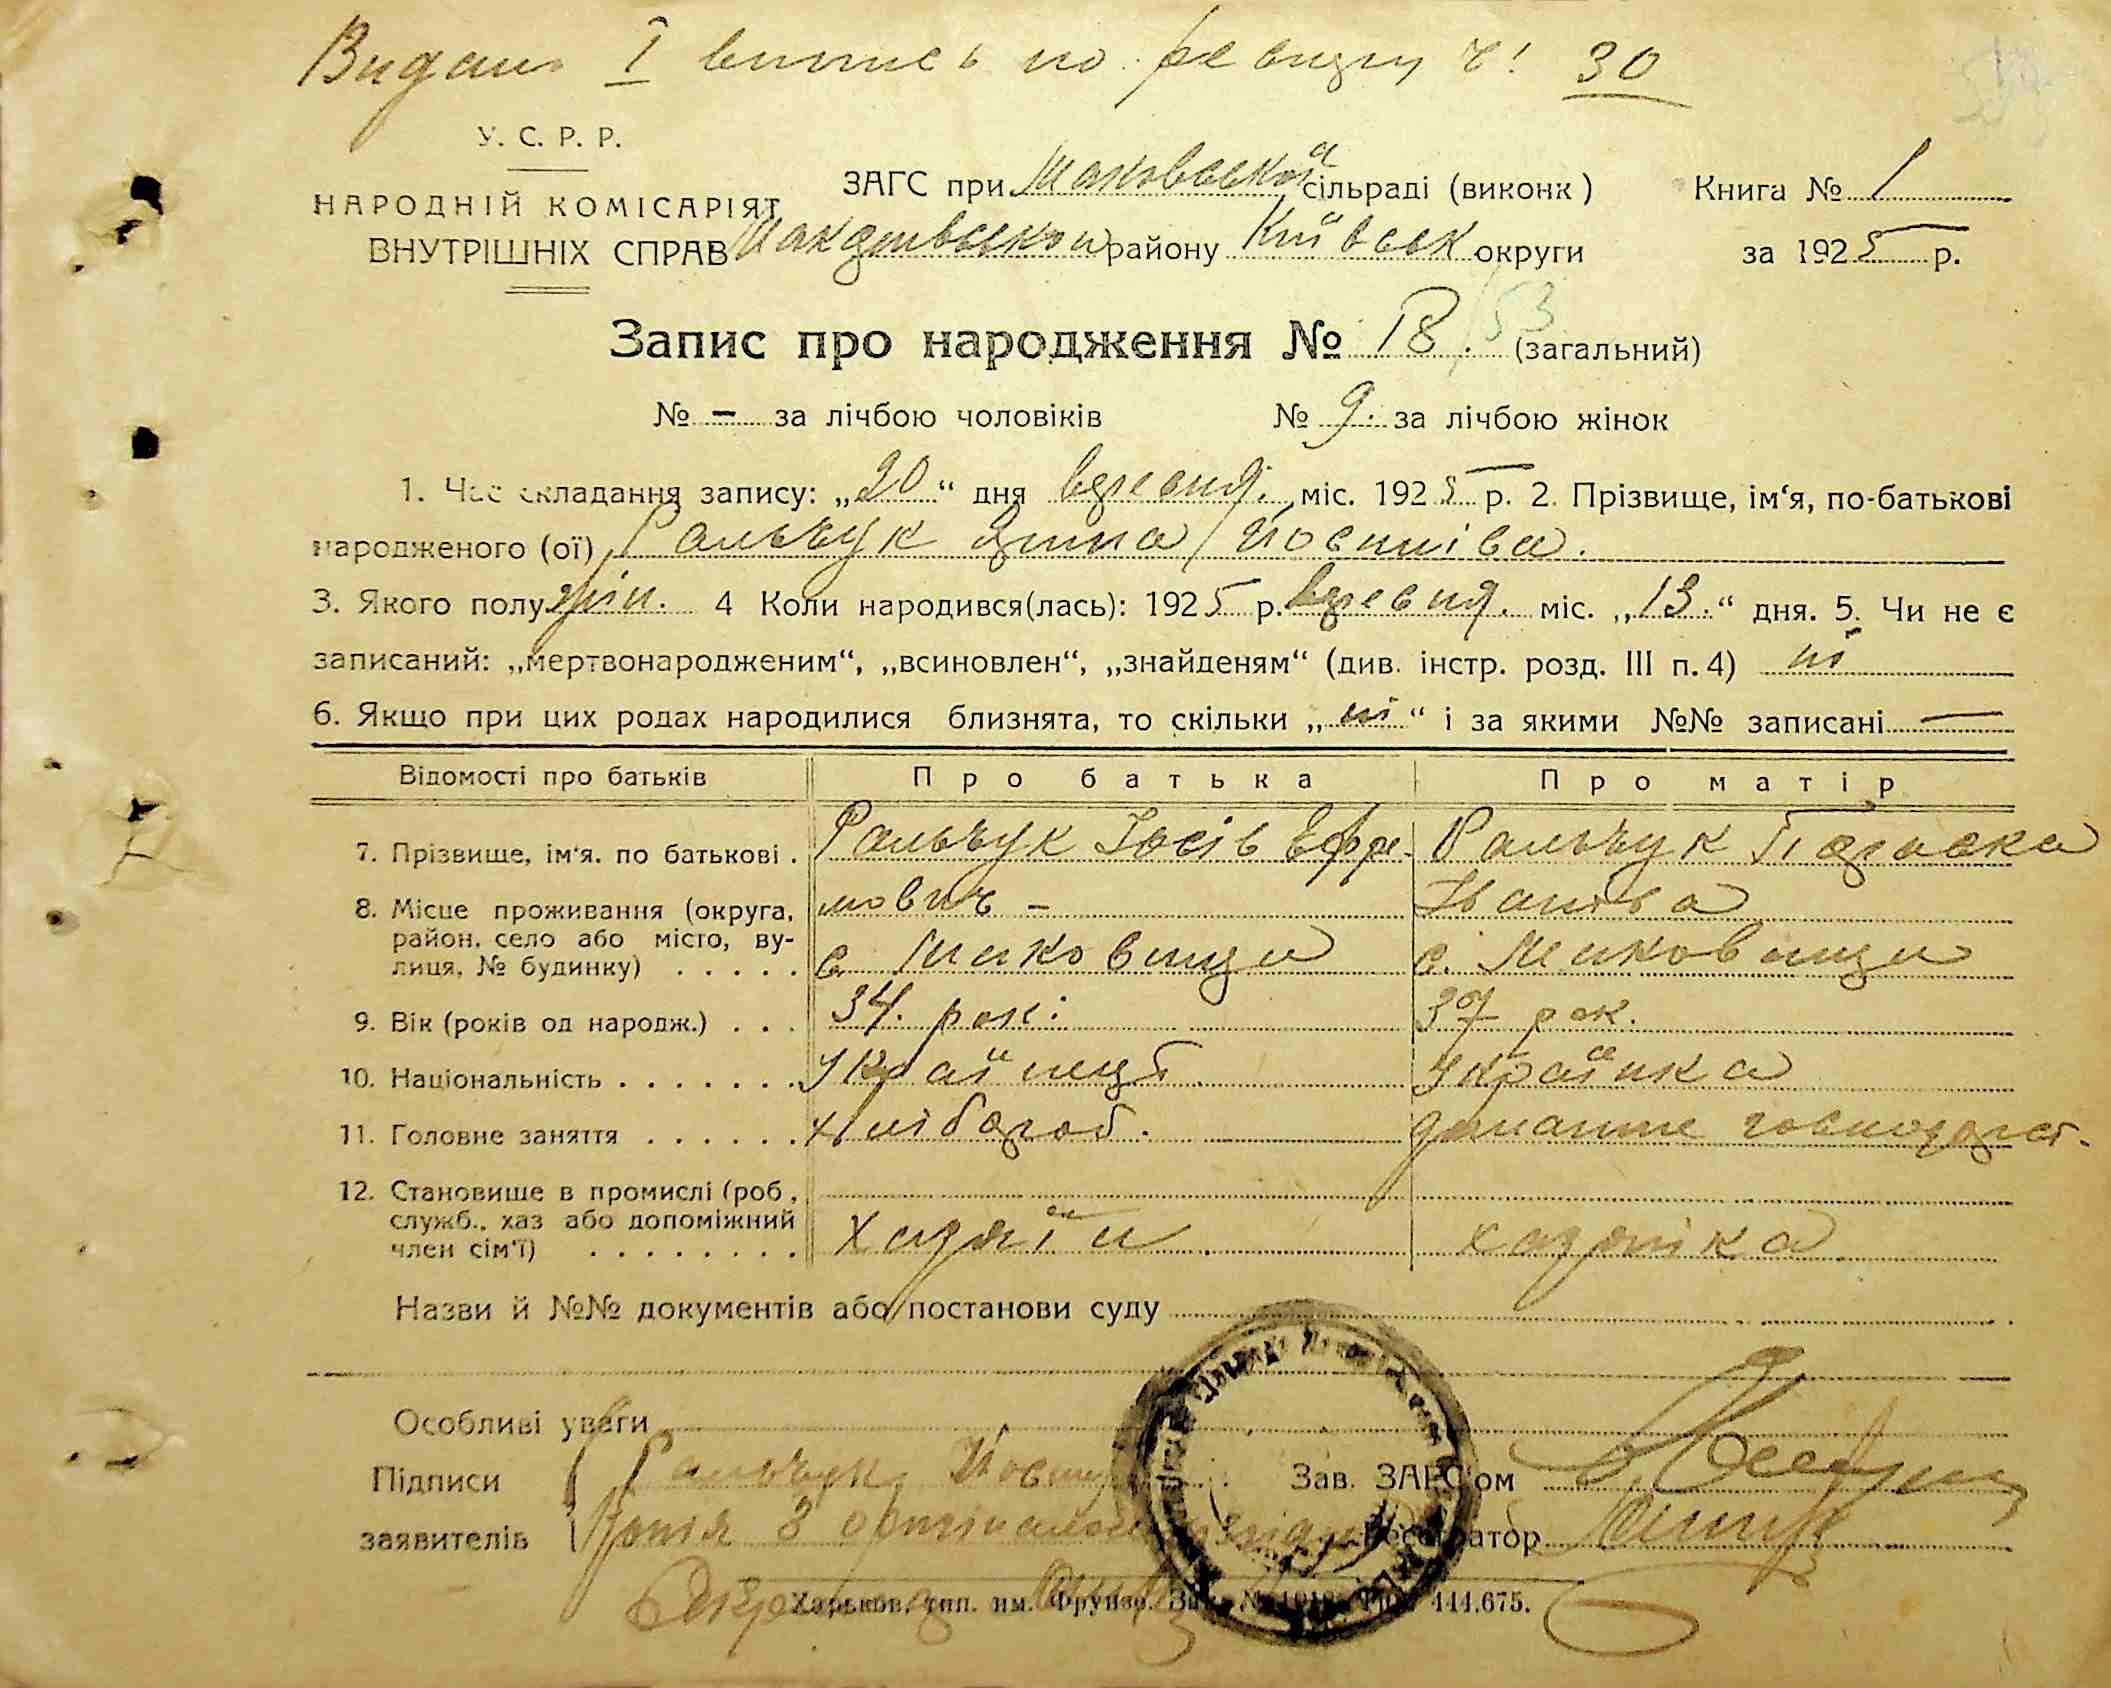 Видано І випись по ревизу ч. 30
У. С. Р. Р.
НАРОДНІЙ КОМІСАРІЯТ
ВНУТРІШНІХ СПРАВ
ЗАГС при Маковської сільраді (виконк)
Макарівського району Київськ округи
Книга № 1
за 1925 р.
Запис про народження № 18. 53 (загальний)
№ — за лічбою чоловіків № 9. за лічбою жінок
1. Час складання запису: „20“ дня вересня. міс. 1925 р. 2. Прізвище, ім‘я, по-батькові
народженого (ої) Ральчук Йосипіва.
3. Якого полу жін. 4 Коли народився(лась): 1925 р. вересня. міс. „13.“ дня. 5. Чи не є
записаний: „мертвонародженим“, „всиновлен“, „знайденям“ (див. інстр. розд. III п. 4) ні
6. Якщо при цих родах народилися близнята, то скільки „ні“ і за якими №№ записані —
Відомості про батьків Про батька Про матір
7. Прізвище, ім‘я. по батькові . Ральчук Іосів Ефре- Ральчук Параска
мович - Іванівна
8. Місце проживання (округа,
район, село або місто, ву-
лиця, № будинку) . . . . . с. Маковищи с. Маковищи
9. Вік (років од народж.) . . . 34. рок: 37 рок.
10. Національність . . . . . . . Українць Українка
11. Головне заняття . . . . . . хлібороб. домашнє господарст.
12. Становище в промислі (роб,
служб., хаз або допоміжний
член сім‘ї) . . . . . . . . хазяїн хазяйка
Назви й №№ документів або постанови суду
Особливі уваги
Підписи
заявителів
Ральчук Йосип
Копія з оригіналом
Зав. ЗАГС‘ом
Реєстратор
Харьков, тип. им. Фрунзе. 444.675.